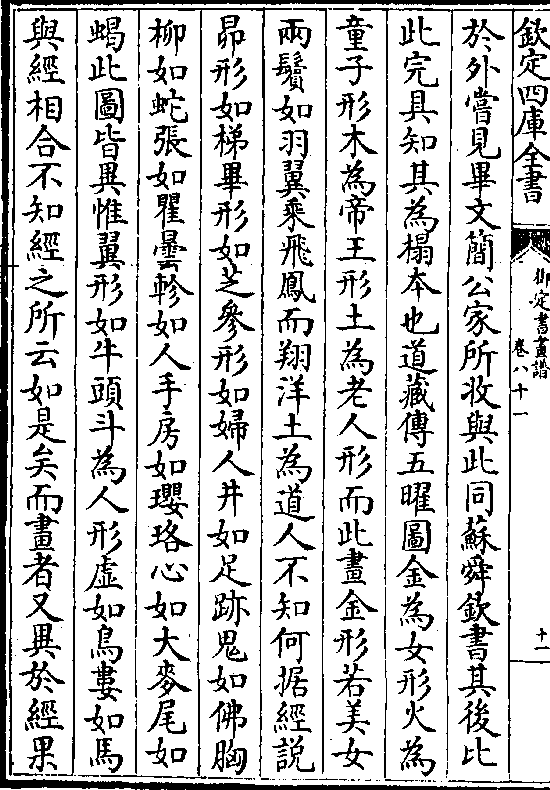 欽定四庫全書
御定書畫譜
卷八十一
十一
於外嘗見畢文簡公家所收與此同蘇舜欽書其後比
此完具知其為榻本也道藏傳五曜圖金為女形火為
童子形木為帝王形土為老人形而此畫金形若美女
兩鬢如羽翼乘飛鳳而翔洋土為道人不知何据經說
昴形如梯畢形如芝參形如婦人井如足跡鬼如佛胸
柳如蛇張如瞿曇軫如人手房如瓔珞心如大麥尾如
蝎此圖皆異惟翼形如牛頭斗為人形虛如鳥婁如馬
與經相合不知經之所云如是矣而畫者又異於經果